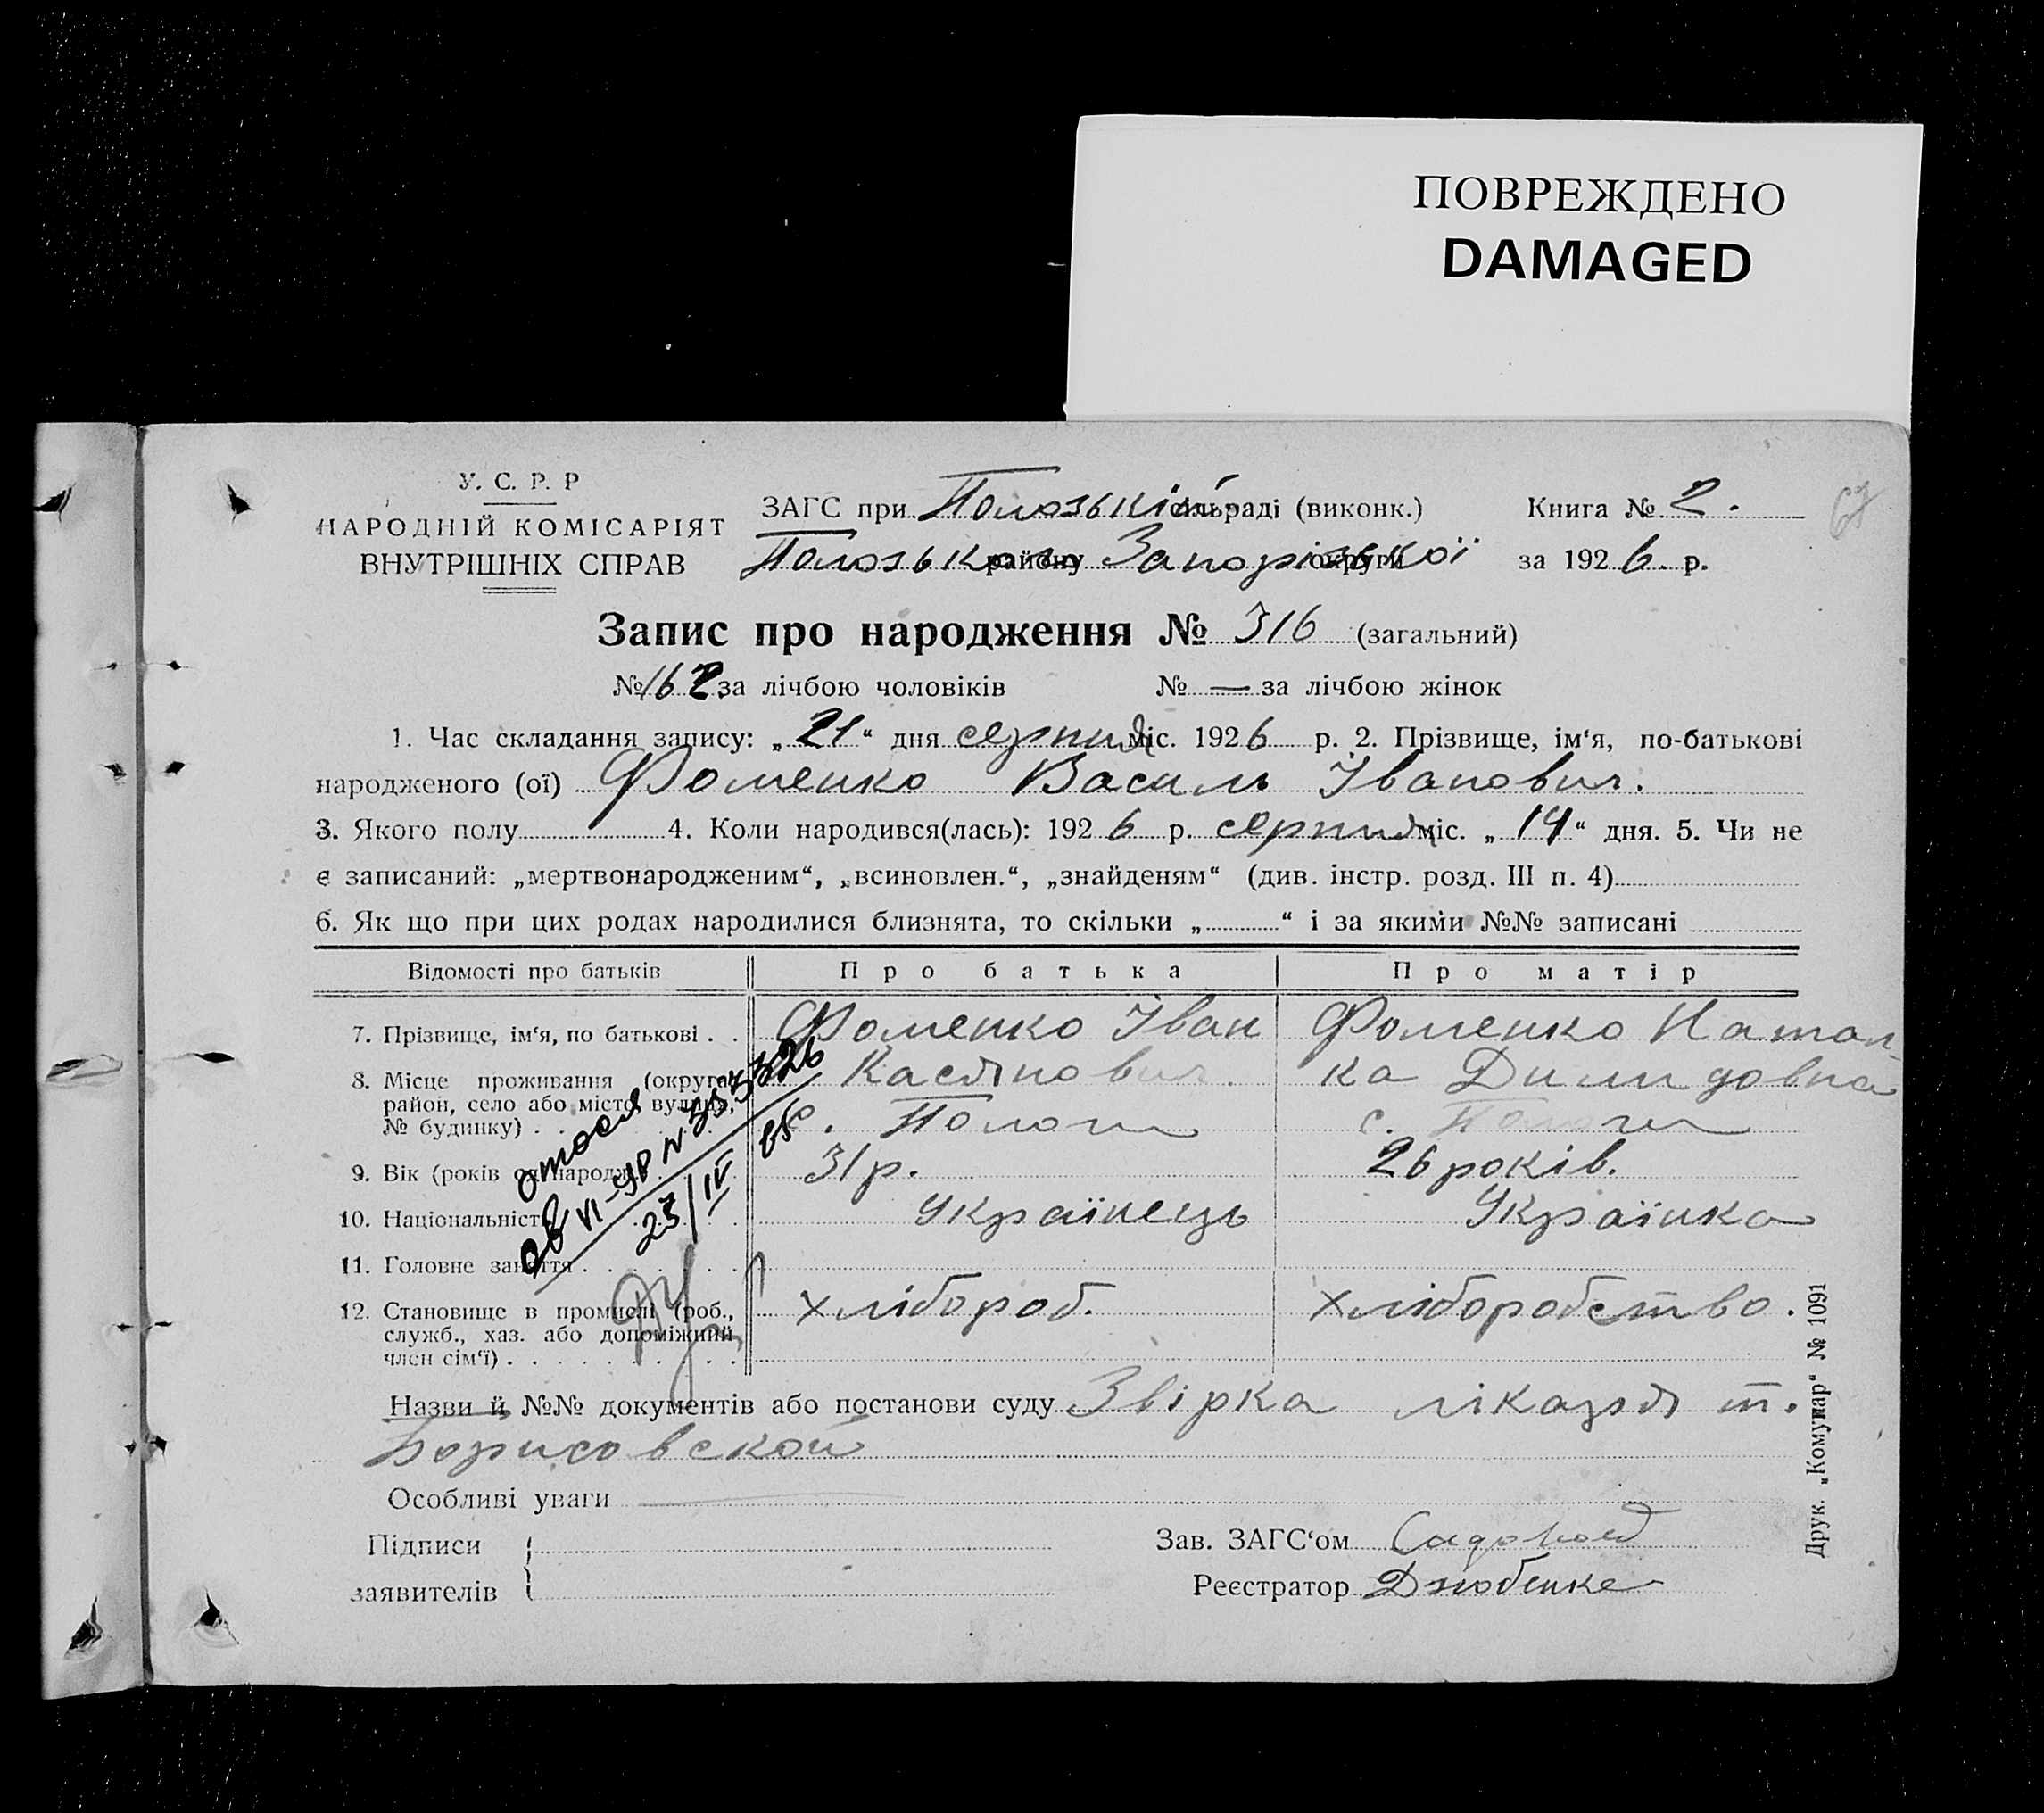 ПОВРЕЖДЕНО
DAMAGED
У. С. Р. Р
НАРОДНІЙ КОМІСАРІЯТ
ВНУТРІШНІХ СПРАВ
ЗАГС при Полозькій сільраді (виконк.)
Полозького району Запорізької округи
Книга № 2.
за 1926. р.
67
Запис про народження № 316 (загальний)
№ 162 за лічбою чоловіків № — за лічбою жінок
1. Час складання запису: „21“ дня серпня міс. 1926 р. 2. Прізвище, ім‘я, по-батькові
народженого (ої) Фоменко Василь Іванович.
3. Якого полу 4. Коли народився(лась): 1926 р. серпня міс. „14“ дня. 5. Чи не
є записаний: „мертвонародженим“, „всиновлен.“, „знайденям“ (див. інстр. розд. III п. 4)
6. Як що при цих родах народилися близнята, то скільки „ “ і за якими №№ записані
Відомості про батьків Про батька Про матір
7. Прізвище, ім‘я, по батькові . . Фоменко Іван Фоменко Натал-
Касянович. ка Димидовна
8. Місце проживання (округа,
район, село або місто, вулиця,
№ будинку) . с. Пологи с. Пологи
9. Вік (років од народж. 31 р. 26 років.
10. Національність Українець Українка
11. Головне заняття
12. Становище в промислі (роб.,
служб., хаз. або допоміжний
член сім‘ї) . хлібороб. хліборобство.
VI-УР N 353326
23/IV 65
Назви й №№ документів або постанови суду Звірка лікаря т.
Борисовской
Особливі уваги
Підписи
заявителів
Зав. ЗАГС‘ом
Реєстратор Дзюбенко
Друк. „Комунар“ № 1091